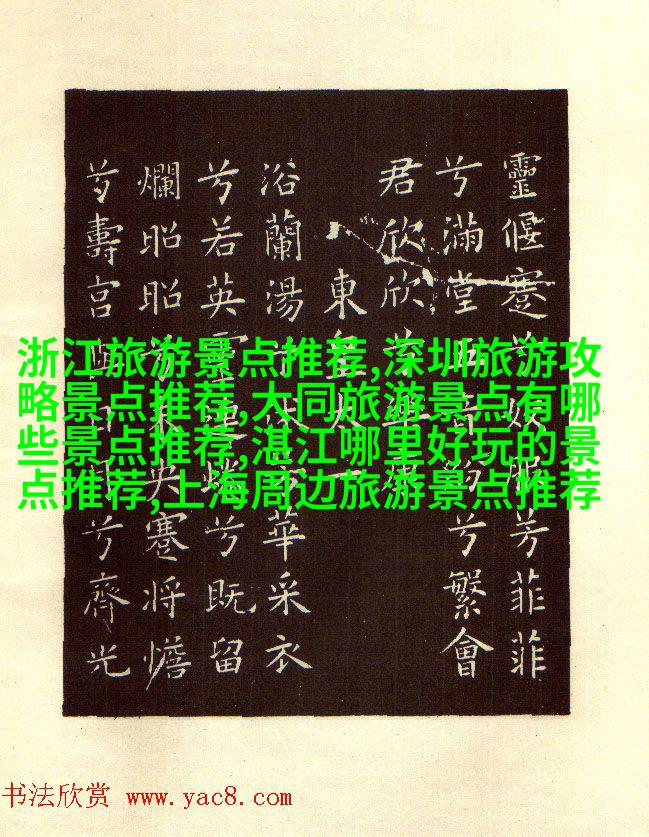 靈偃蹇兮姣服芳菲菲
兮滿堂五音紛兮繁會
君欣欣兮樂康
東皇太一
浴蘭湯兮沐芳華采衣
兮若英靈連蜷兮既留
爛昭昭兮未央蹇將憺
兮壽宮與日月兮齊光
浙江旅游景点推荐,深圳旅游攻
略景点推荐,大同旅游景点有哪
些景点推荐,湛江哪里好玩的景
点推荐,上海周边旅游景点推荐
书法欣赏 www.yac8.com